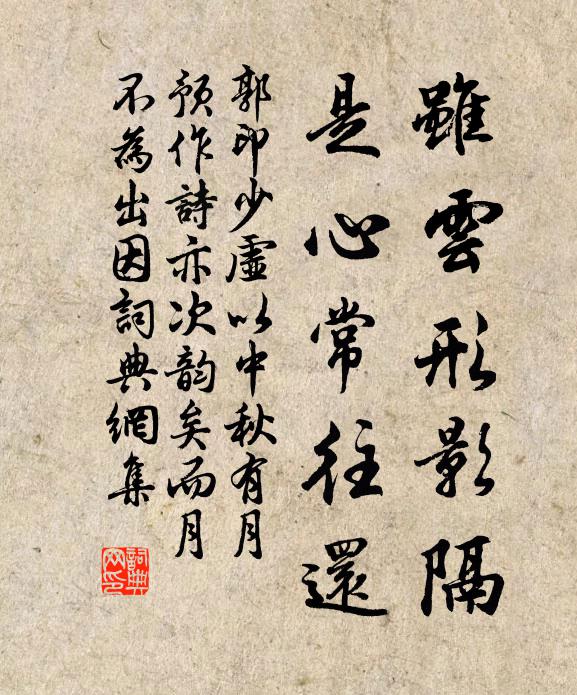 雖雲形影隔
是心常往還
郭印少虛以中秋有月
預作詩亦次韵矣而月
不為出因詞典網集
詞典网印